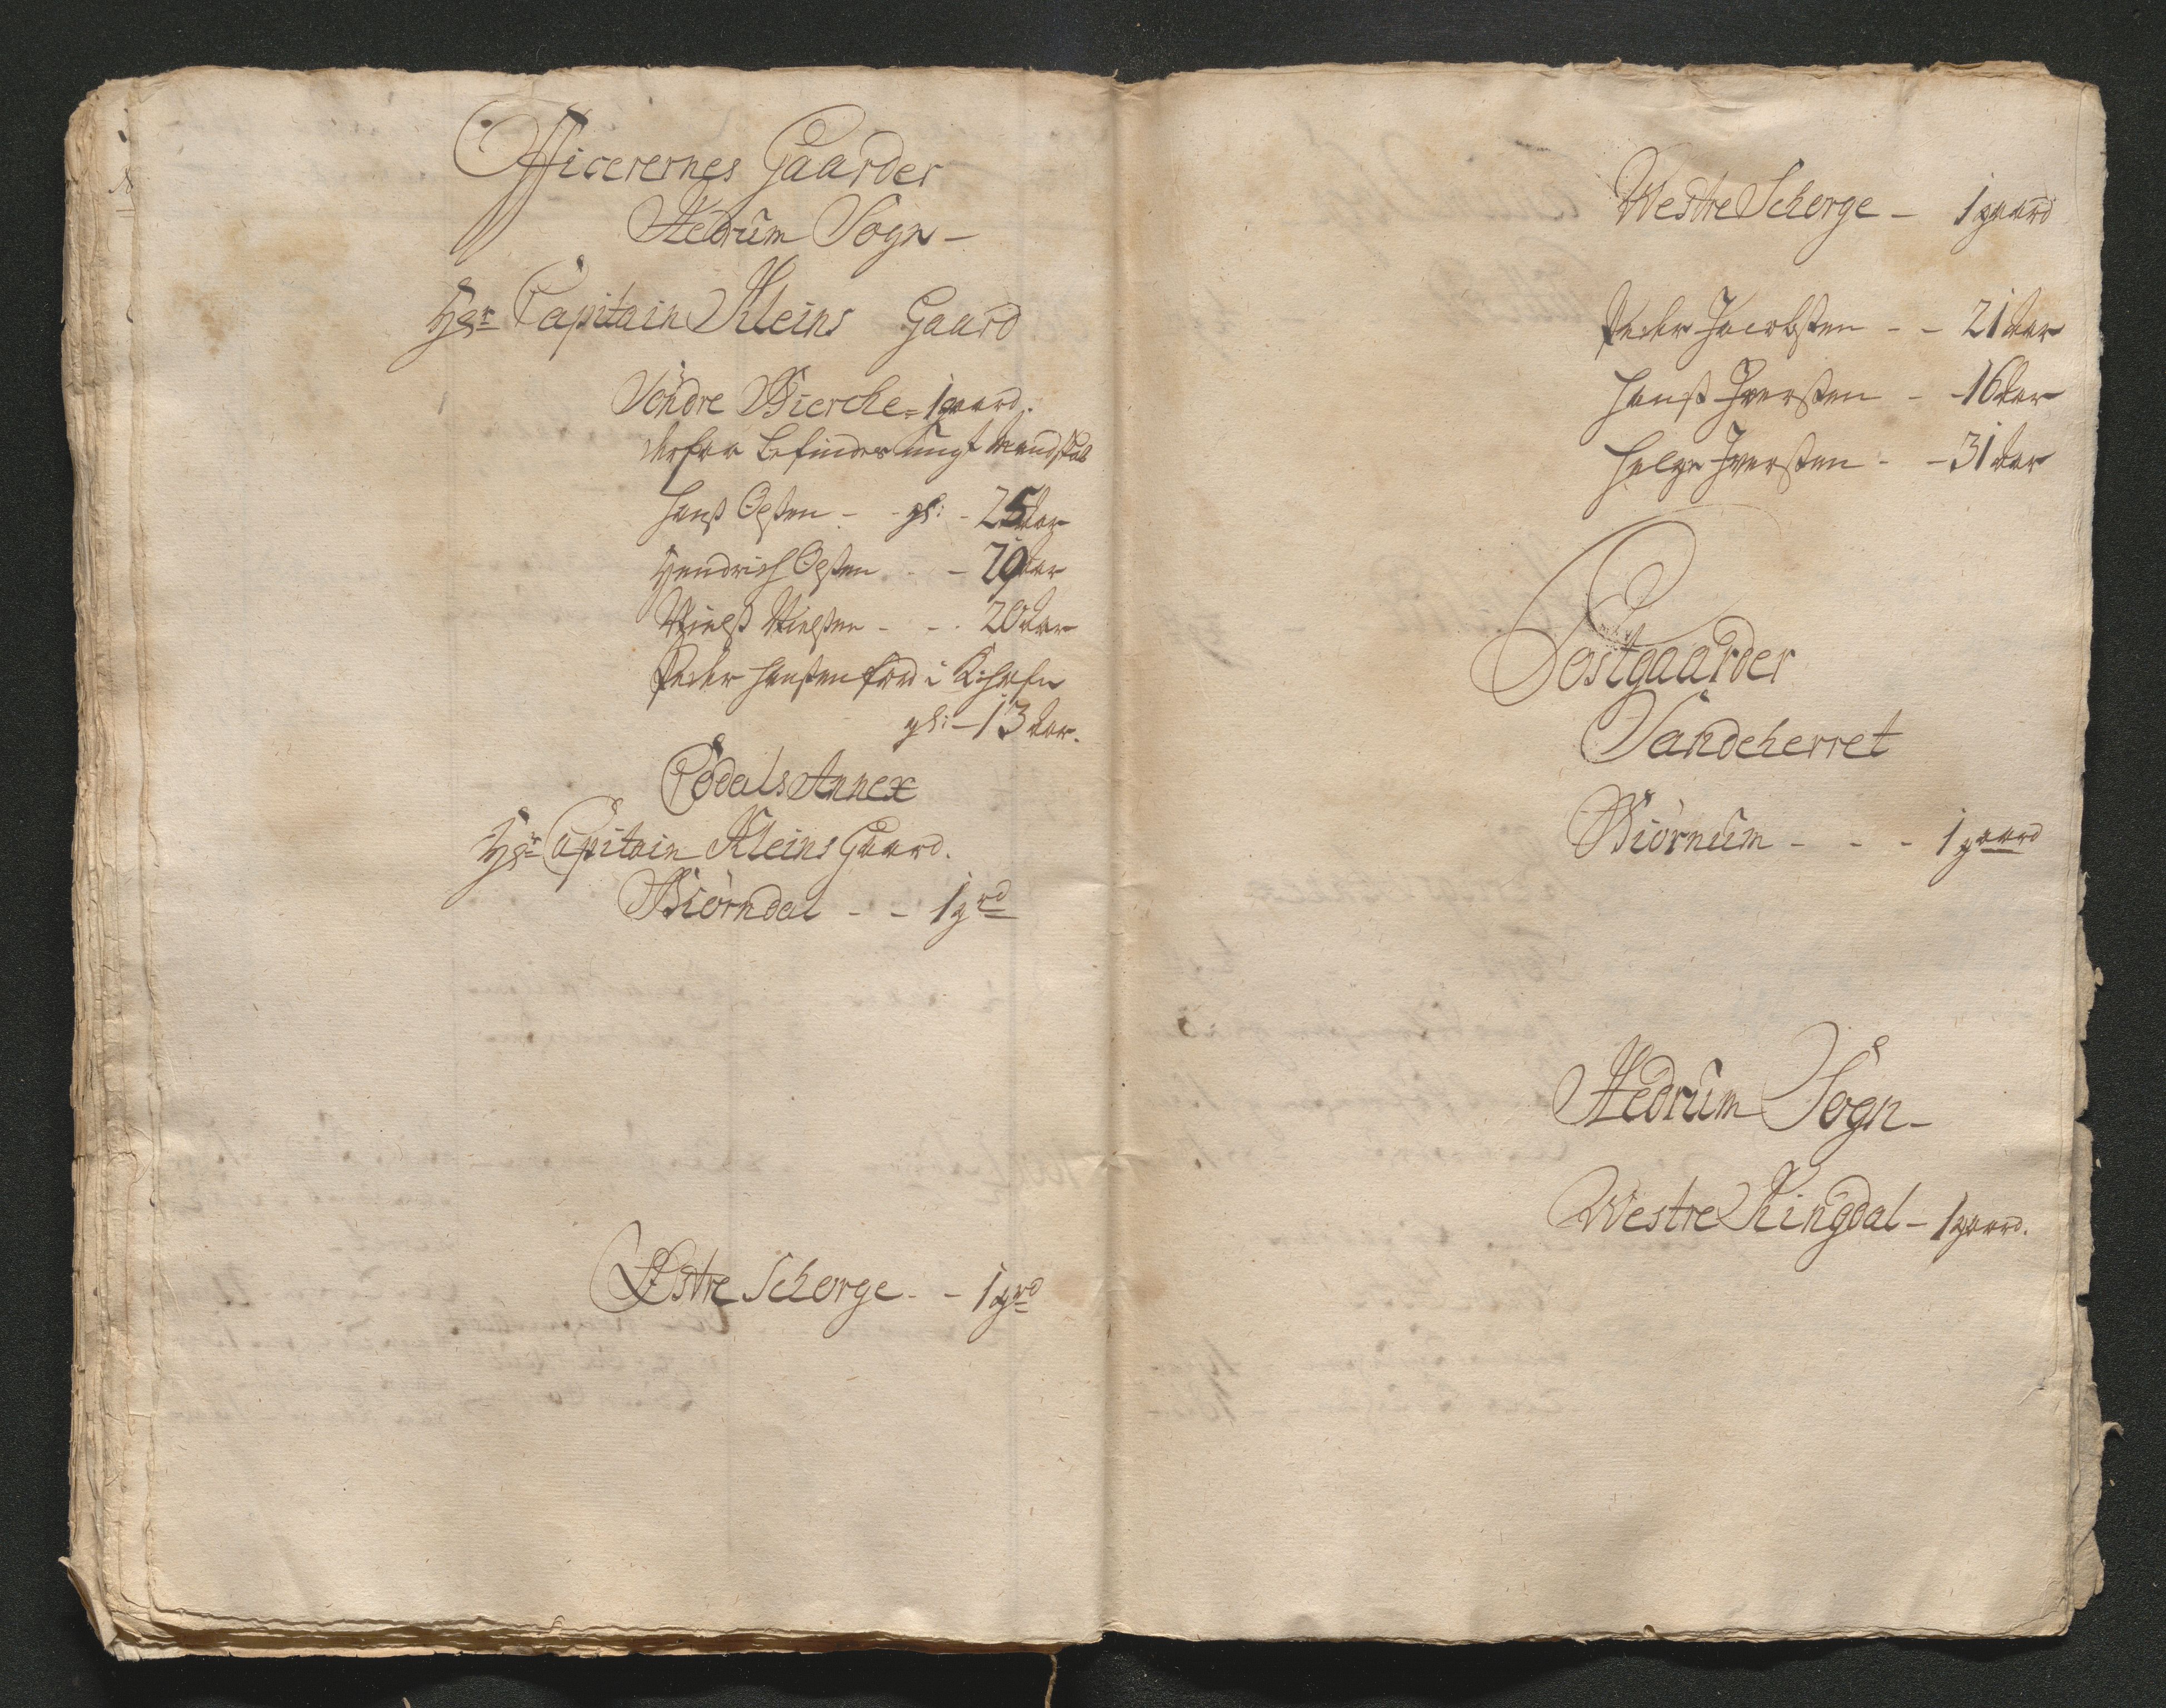 Officerernes Gaarder
Hedrum Sogn -
Hr: Capitain Kleins Gaard
Söndre Bierche = 1 gaard.
derpaa befindes ungt Mandskab
Hanß Olßen - - gl: - 25 Aar
Hendrich Olßen - - 20 Aar
Nielß Nielßen - - - 20 Aar
Peder Hanßen föed i
gl: - 13 Aar.
Odals Annex
Hr: Capitain Kleins Gaard.
Biörndal - - 1 grd
Östre Schorge - - 1 grd
Westre Schorge - 1 gaard
Peder Jacobßen - - 21 Aar
Hanß Iverßen - - 16 Aar
Helge Iverßen - - 31 Aar
Postgaarder
Sandeherret
Biörnum - - - 1 gaard
Hedrum Sogn -
Westre Ringdal - 1 gaard.